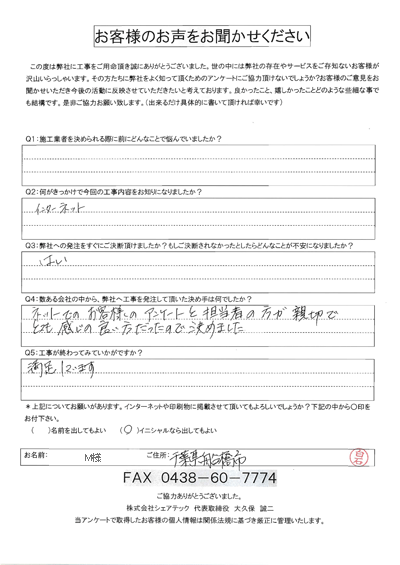 お客様のお声をお聞かせください
この度は弊社に工事をご用命頂き誠にありがとうございました。世の中には弊社の存在やサービスをご存知ないお客様が
沢山いらっしゃいます。その方たちに弊社をよく知って頂くためのアンケートにご協力頂けないでしょうか?お客様のご意見をお
聞かせいただき今後の活動に反映させていただきたいと考えております。良かったこと、嬉しかったことどのような些細な事で
も結構です。是非ご協力お願い致します。(出来るだけ具体的に書いて頂ければ幸いです)
Q1:施工業者を決められる際に前にどんなことで悩んでいましたか?
Q2:何がきっかけで今回の工事内容をお知りになりましたか?
インターネット
Q3:弊社への発注をすぐにご決断頂けましたか?もしご決断されなかったとしたらどんなことが不安になりましたか?
はい
Q4:数ある会社の中から、弊社へ工事を発注して頂いた決め手は何でしたか?
ネットでの お客様の アンケートと 担当者の方が 親切で
とても 感じの良い方だったので決めました
Q5:工事が終わってみていかがですか?
満足しています
*上記についてお願いがあります。インターネットや印刷物に掲載させて頂いてもよろしいでしょうか?下記の中から〇印を
お付下さい。
( )名前を出してもよい (〇)イニシャルなら出してもよい
お名前: M様 ご住所: 千葉県船橋市 白石
FAX 0438-60-7774
ご協力ありがとうございました。
株式会社シェアテック 代表取締役 大久保 誠二
当アンケートで取得したお客様の個人情報は関係法規に基づき厳正に管理いたします。